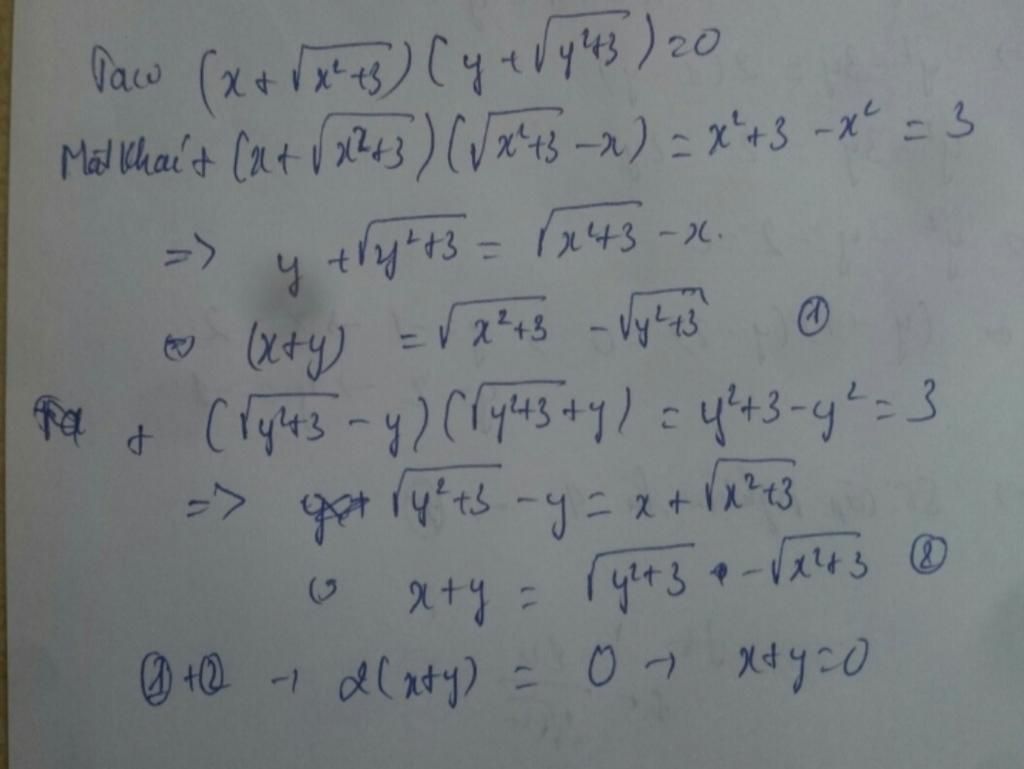 Ta co (x + √(x²+3)) (y + √(y²+3)) = 0
Mặt Khác + (x + √(x²+3)) (√(x²+3) - x) = x²+3 - x² = 3
=> y + √(y²+3) = √(x²+3) - x.
⇔ (x+y) = √(x²+3) - √(y²+3) ①
+ (√(y²+3) - y) (√(y²+3) + y) = y²+3 - y² = 3
=> √(y²+3) - y = x + √(x²+3)
⇔ x+y = √(y²+3) - √(x²+3) ②
①+② → 2(x+y) = 0 → x+y=0